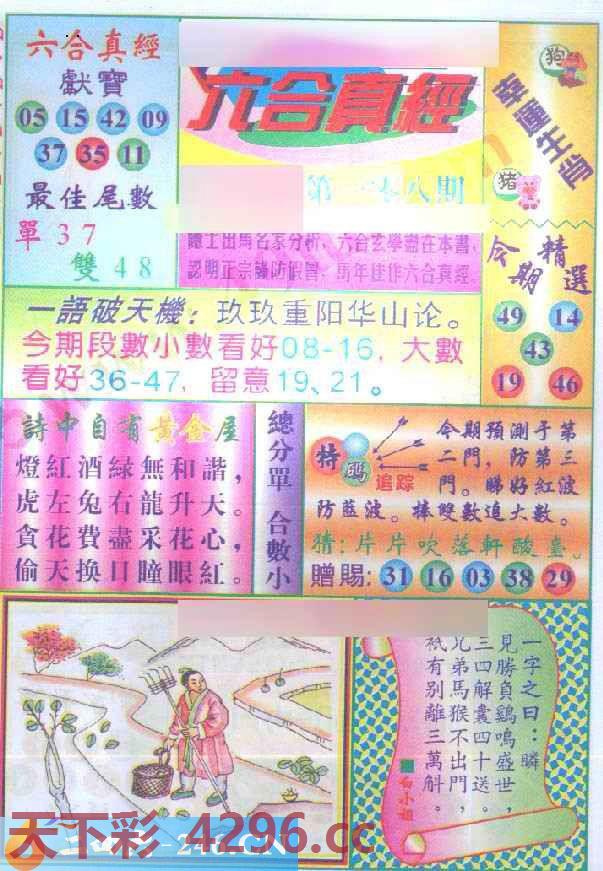 六合真經
獻寶
05 15 42 09
37 35 11
最佳尾數
單37
雙48
六合真經
八期
認明正宗謹防假冒、馬年佳作六合真經
狗
幸運生肖
猪
今期精選
49 14
43
19 46
一語破天機：玖玖重阳华山论。
今期段數小數看好08-16, 大數
看好36-47, 留意19、21。
詩中自有黃金屋
燈紅酒緑無和諧，
虎左兔右龍升天。
貪花費盡采花心，
偷天换日瞳眼紅。
總分單 合數小
特碼
追踪
今期預測子第
二門，防第三
門。睇好紅波
防藍波。捧雙數追大數。
猜：片片吹落軒
贈賜：31 16 03 38 29
一字之曰：瞵
見勝負鷄鳴盛世，
三四解囊四十送。
兄弟馬猴不出門，
祇有别離三萬斛。
白小姐
天下彩 4296.cc